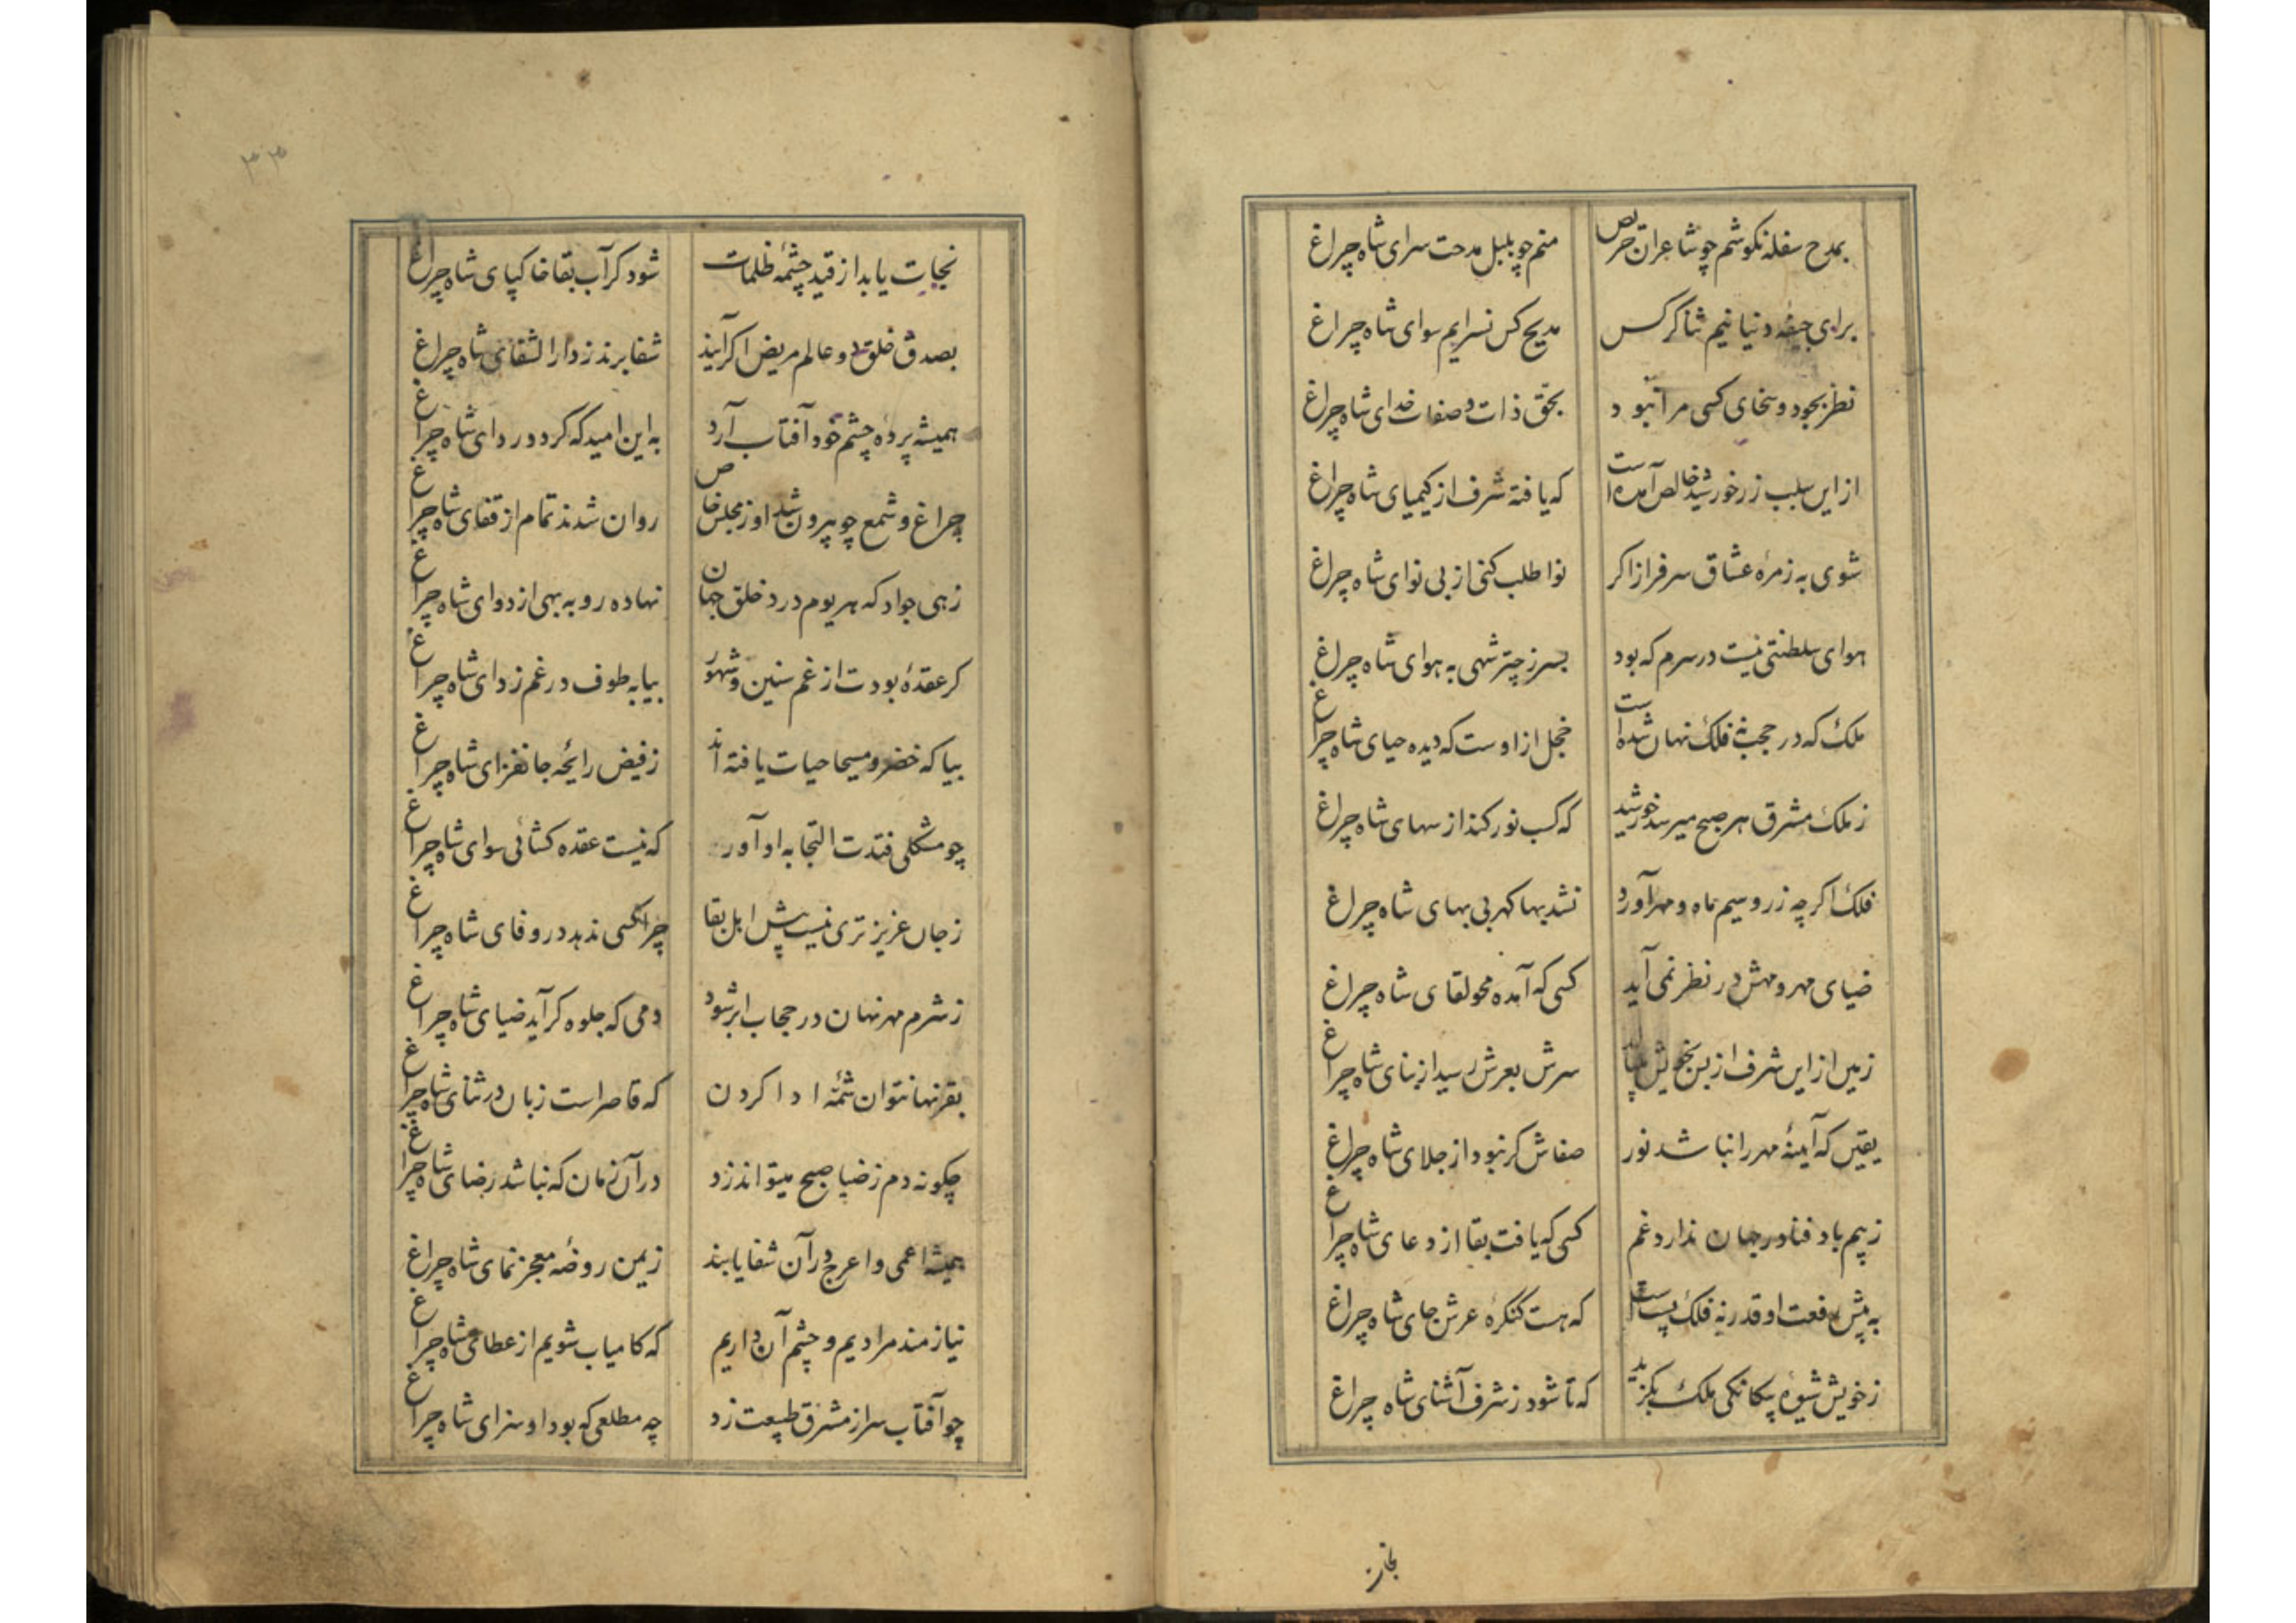 بمدح سفله نکوشم چو شاعران حریص منم چو بلبل مدحت سرای شاه چراغ
برای جیفه دنیا نیم ثناگر کس مدیح کس نسرایم سوای شاه چراغ
نظر بجود و سخای کسی مرا نبود بحق ذات و صفات خدای شاه چراغ
از این سبب زر خورشید خالص آمده است که یافته شرف از کیمیای شاه چراغ
شوی به زمرهٔ عشاق سرفراز اکر نوا طلب کنی از بی نوای شاه چراغ
هوای سلطنتی نیست در سرم که بود بسر ز چتر شهی به هوای شاه چراغ
ملک که در حجب نه فلک نهان شده است خجل از اوست که دیده حیای شاه چراغ
ز ملک مشرق هر صبح میرسد خورشید که کسب نور کند از سهای شاه چراغ
فلک اکرچه زر و سیم ماه و مهر آورد نشد بها کهر بی بهای شاه چراغ
ضیای مهر و مهش در نظر نمی آید کسی که آمده محو لقای شاه چراغ
زمین از این شرف از بس بخویش سرش بعرش رسید از بنای شاه چراغ
یقین که آینهٔ مهر را نباشد نور صفاش کر نبود از جلای شاه چراغ
ز بیم باد فنا در جهان ندارد غم کسی که یافت بقا از دعای شاه چراغ
به پیش رفعت او قدر نه فلک پست است که هست کنکرهٔ عرش جای شاه چراغ
ز خویش شیوهٔ بیکانکی ملک بکزید که تا شود ز شرف آشنای شاه چراغ
نجات
۳۳
نجات یابد از قید چشمهٔ ظلمات شود کر آب بقا خاکپای شاه چراغ
بصدق خلق دو عالم مریض اکر آیند شفا برند ز دارالشفای شاه چراغ
همیشه پردهٔ چشم خود آفتاب آرد به این امید که کردد ردای شاه چراغ
چراغ و شمع چو بیرون شد او ز مجلس خاص روان شدند تمام از قفای شاه چراغ
زهی جواد که هر یوم درد خلق جهان نهاده رو به بهی از دوای شاه چراغ
کر عقدهٔ بودت از غم سنین و شهور بیا به طوف در غم زدای شاه چراغ
بیا که خضر و مسیحا حیات یافته اند ز فیض رایحه جانفزای شاه چراغ
چو مشکلی فتدت التجا به او آور که نیست عقده کشائی سوای شاه چراغ
ز جان عزیزتری نیست پیش اهل بقا چرا کسی ندهد در وفای شاه چراغ
ز شرم مهر نهان در حجاب ابر شود دمی که جلوه کر آید ضیای شاه چراغ
بقرنها نتوان شمهٔ ادا کردن که قاصر است زبان در ثنای شاه چراغ
چکونه دم ز ضیا صبح میتواند زد در آن زمان که نباشد رضای شاه چراغ
همیشه اعمی و اعرج در آن شفا یابند ز یمن روضهٔ معجز نمای شاه چراغ
نیازمند مرادیم و چشم آن داریم که کامیاب شویم از عطای شاه چراغ
چو آفتاب سر از مشرق طبیعت زد چه مطلعی که بود او سزای شاه چراغ